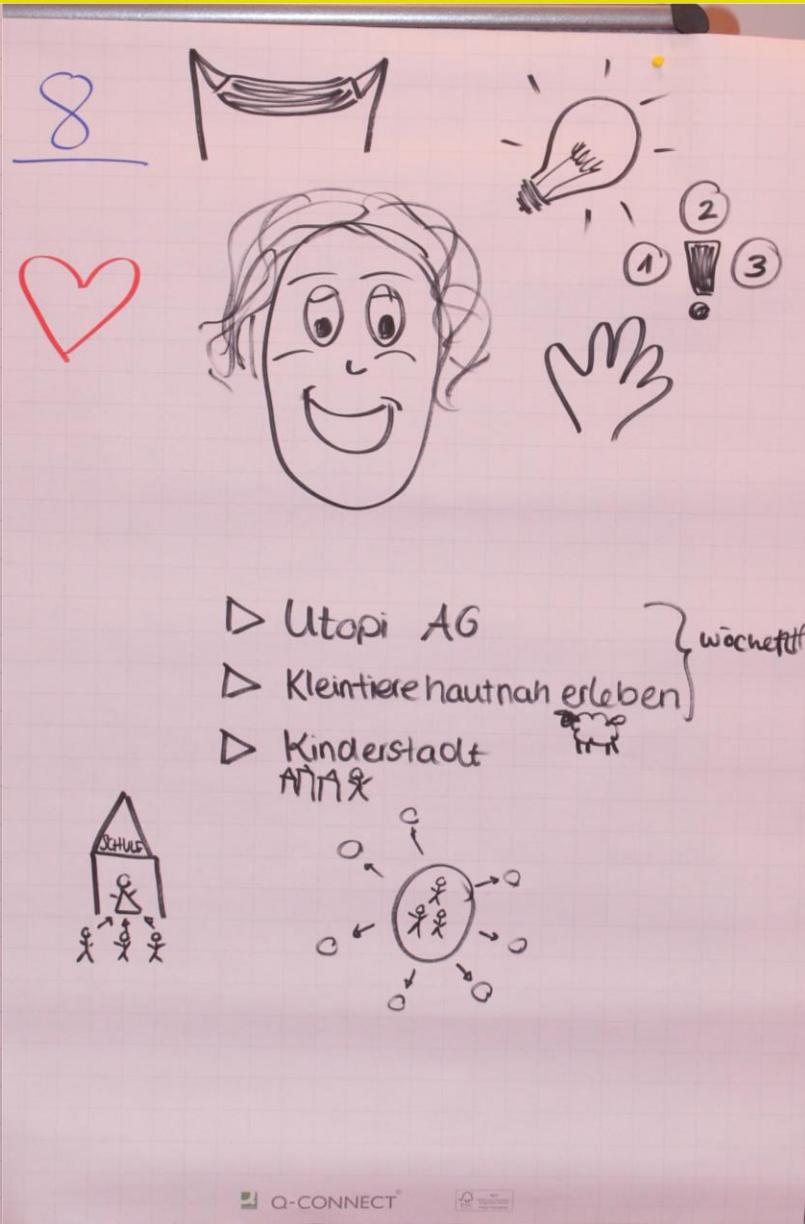 8
2
1 ! 3
▷ Utopi AG
▷ Kleintiere hautnah erleben
▷ Kinderstadt
SCHULE
Q-CONNECT®